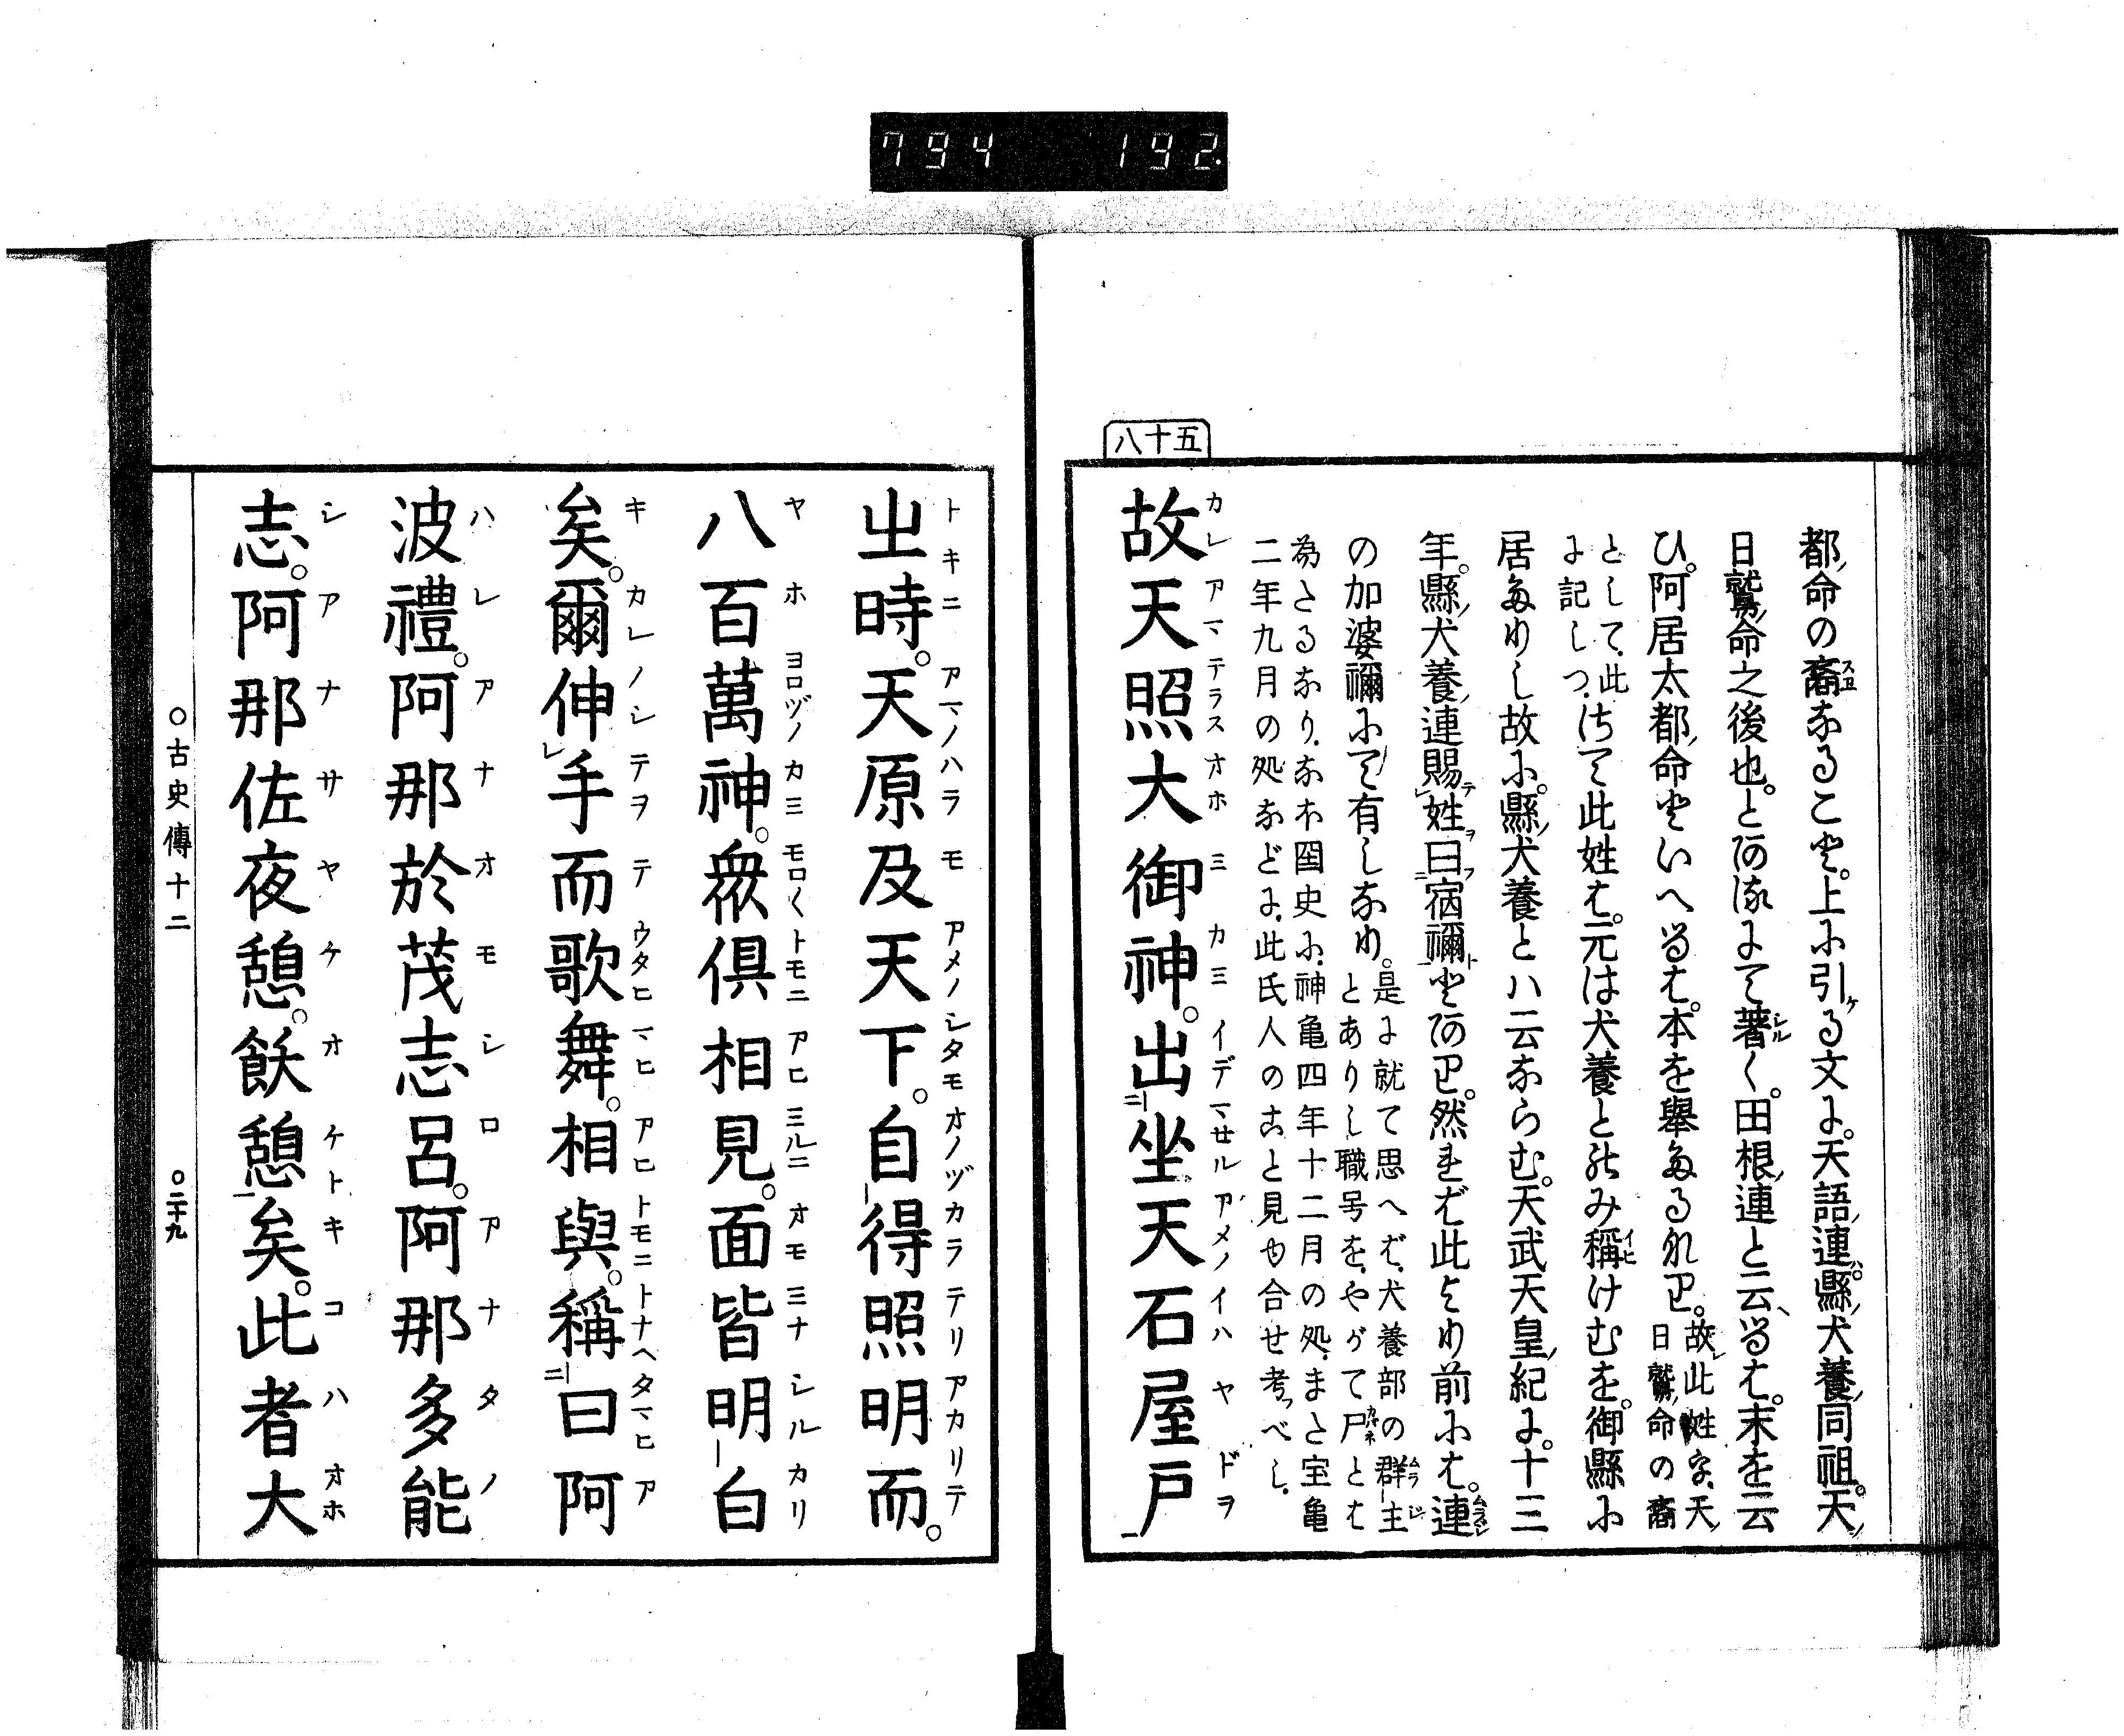 794 192.
八十五
都命の裔なること。上に引る文に。天語連。縣犬養同祖。天
日鷲命之後也。とあるにて著く。田根連と云るは。末を云
ひ。阿居太都命といへるは。本を擧たるなり。故此姓を、天日鷲命の裔
として、此に記しつ、さて此姓は。元は犬養とのみ稱けむを。御縣に
居たりし故に。縣犬養とハ云ならむ。天武天皇紀に。十三
年。縣犬養連賜姓曰宿禰とあり。然れば此より前には。連
の加婆禰にて有しなり。是に就て思へば、犬養部の群主とありし職号を、やがて尸とは
為たるなり、なお国史に、神亀四年十二月の処、また宝亀
二年九月の処などに、此氏人のこと見ゆ合せ考べし、
故天照大御神。出坐天石屋戸
之時。天原及天下。自得照明而。
八百萬神。衆俱相見。面皆明白
矣。爾伸手而歌舞。相與。稱曰阿
波禮。阿那於茂志呂。阿那多能
志。阿那佐夜憩。飫憩矣。此者大
○古史傳十二 ○二十九